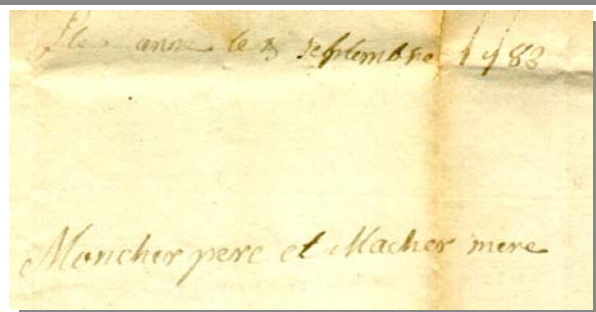 le 8 septembre 1783
Moncher pere et Macher mere